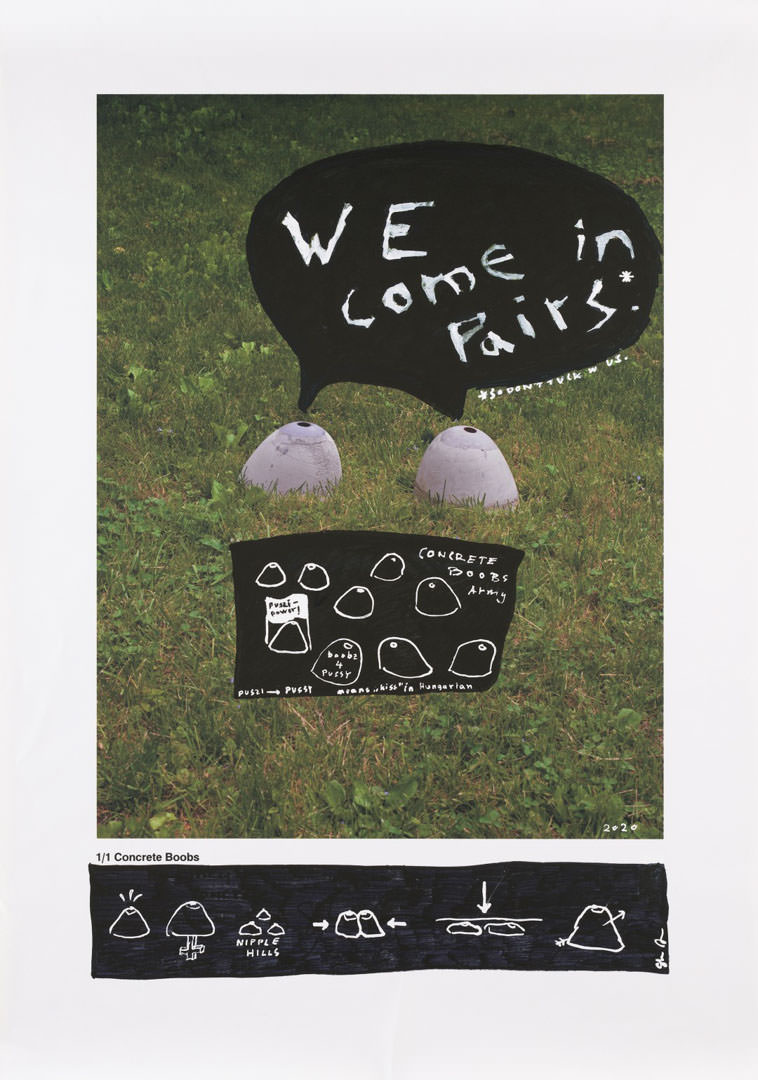 WE
come in
Pairs.*
*SO DON'T FUCK W US.
CONCRETE
BOOBS
Army
puszi-
power!
boobz
4
PUSSY
PUSZI → PUSSY means „kiss" in Hungarian
2020
1/1 Concrete Boobs
NIPPLE
HILLS